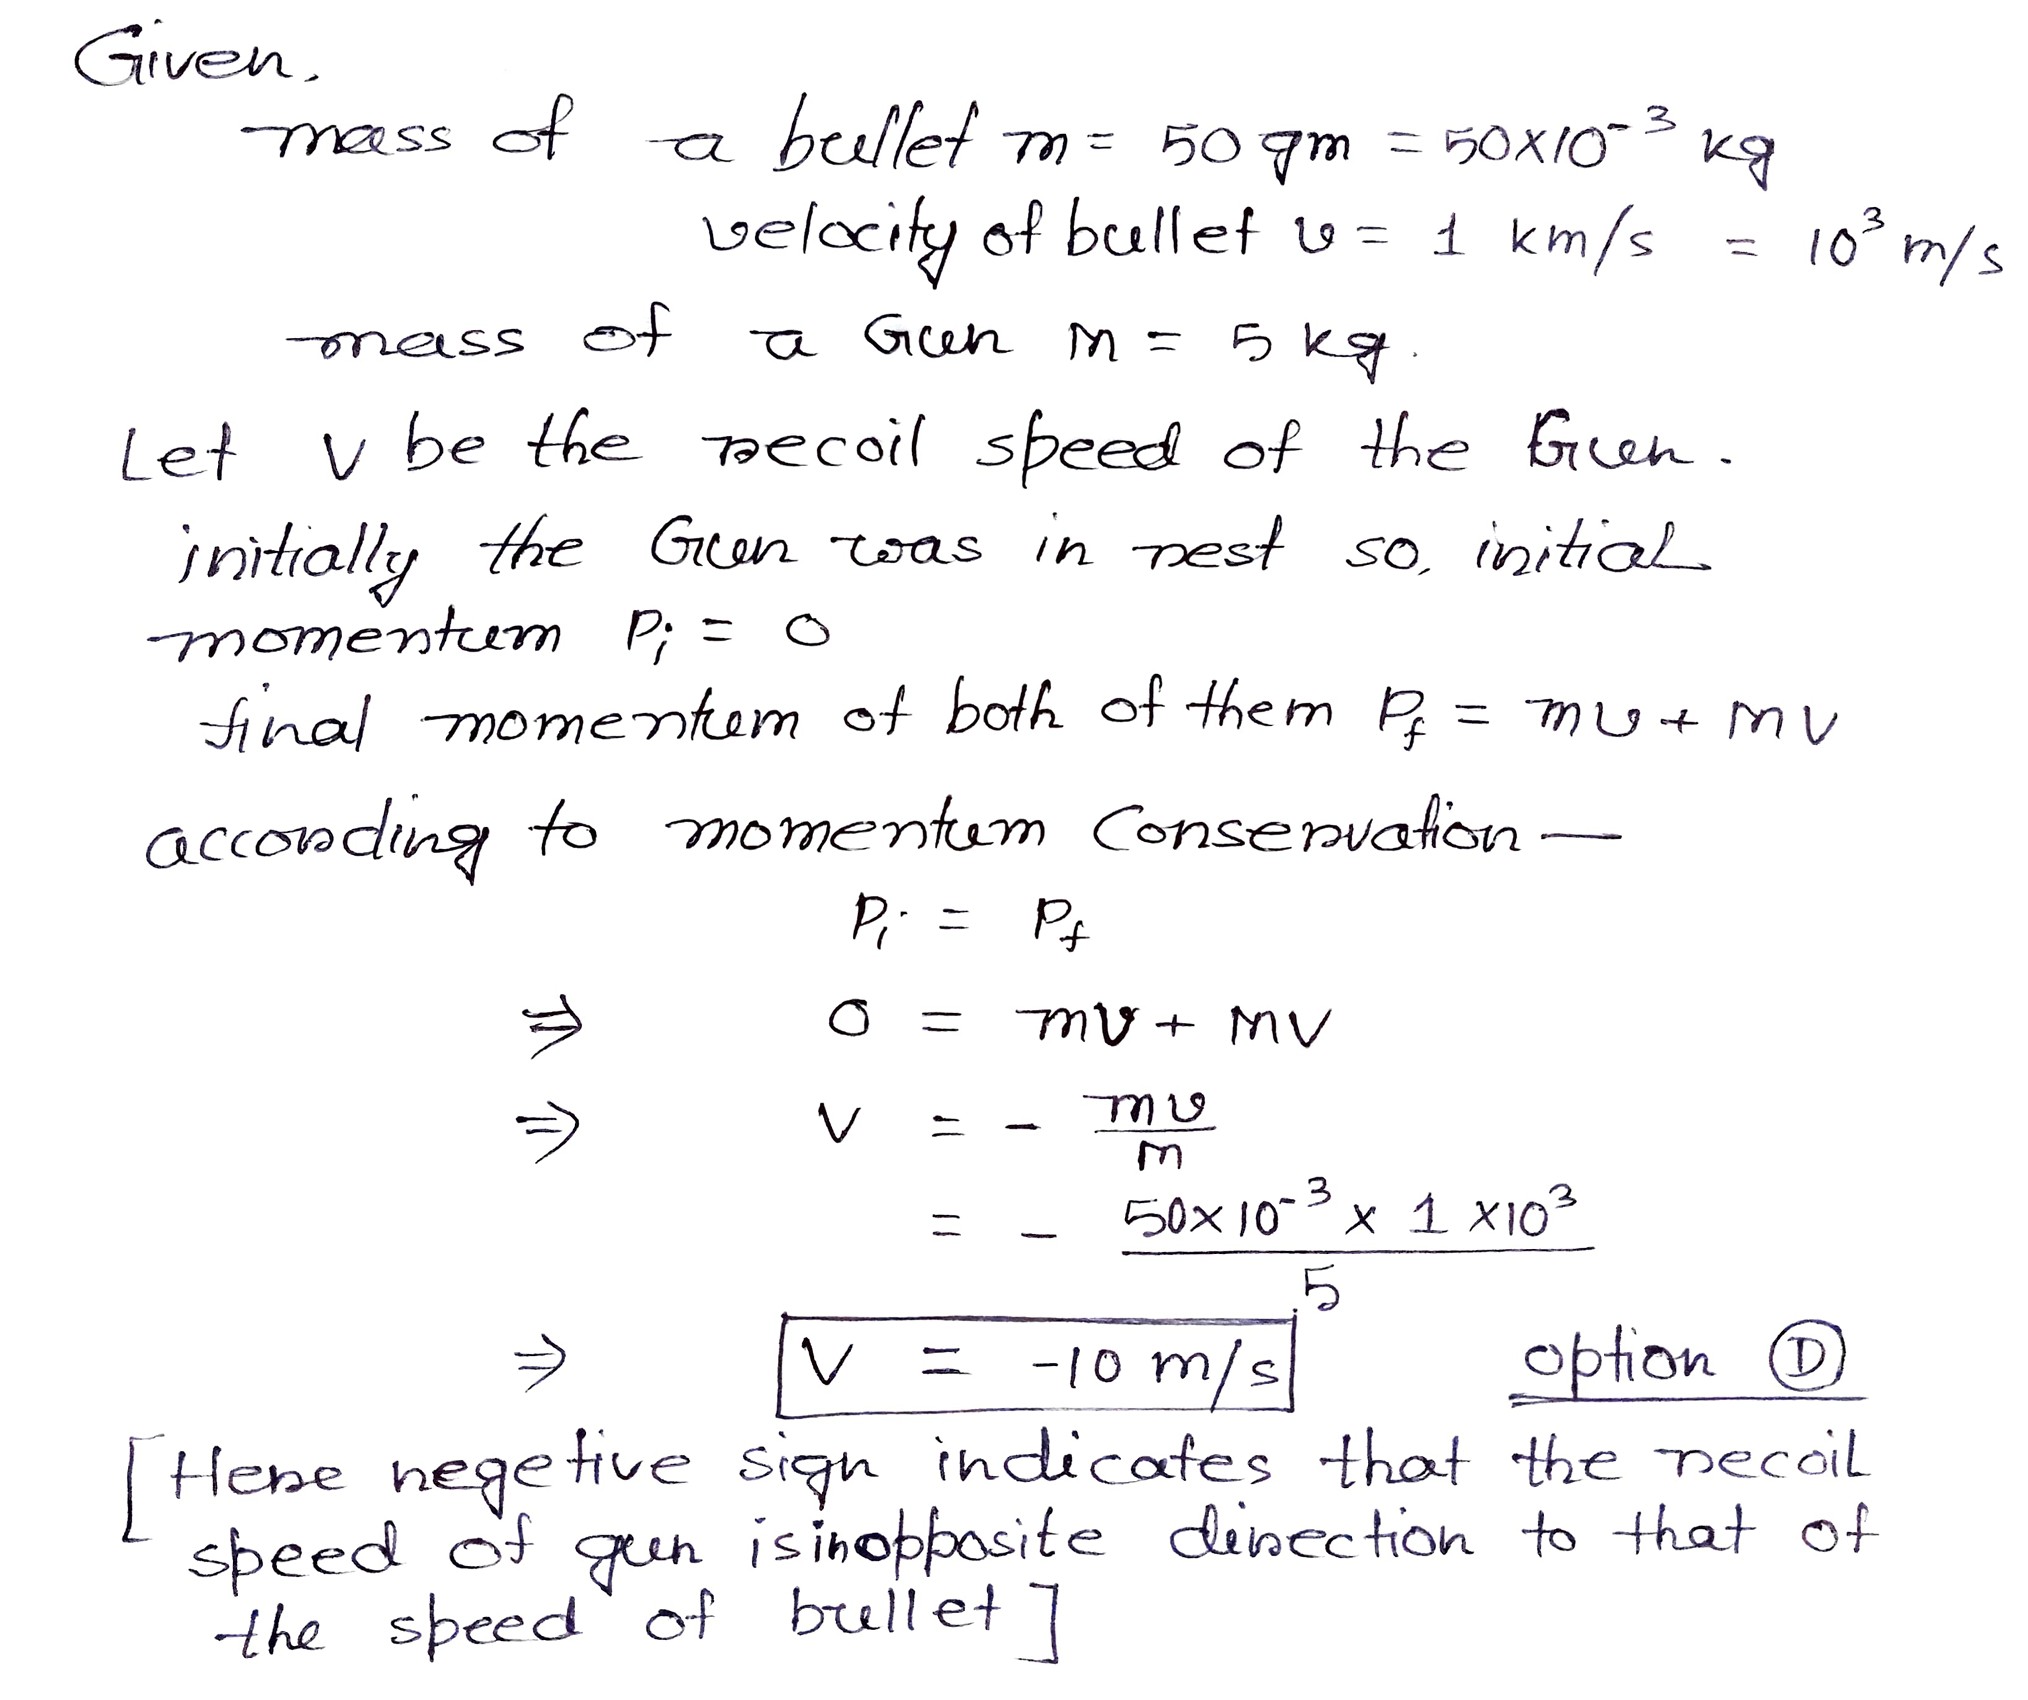 Given,
mass of a bullet m = 50 gm = 50×10⁻³ kg
velocity of bullet v = 1 km/s = 10³ m/s
mass of a Gun M = 5 kg.
Let V be the recoil speed of the Gun.
initially the Gun was in rest so, initial
momentum Pᵢ = 0
final momentum of both of them P_f = mv + MV
according to momentum Conservation —
Pᵢ = P_f
⇒ 0 = mv + MV
⇒ V = - mv/M
= - 50×10⁻³ × 1 ×10³ / 5
⇒ V = -10 m/s option Ⓓ
[Here negetive sign indicates that the recoil
speed of gun is in opposite direction to that of
the speed of bullet]